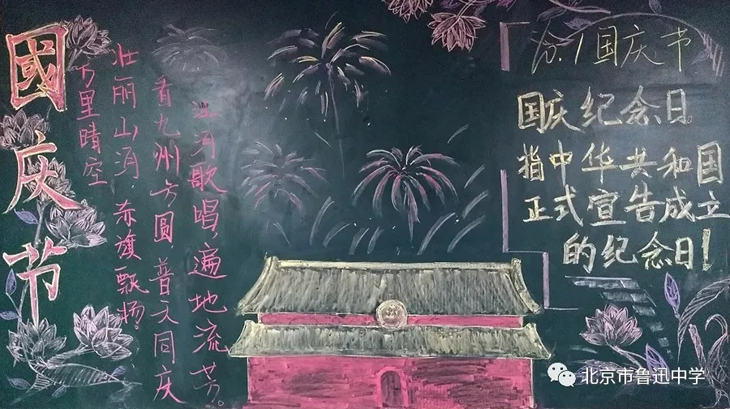 國庆节
万里晴空
壮丽山河,赤旗飘扬。
看九州方圆,普天同庆
江河歌唱,遍地流芳。
10.1国庆节
国庆纪念日。
指中华共和国
正式宣告成立
的纪念日!
北京市鲁迅中学